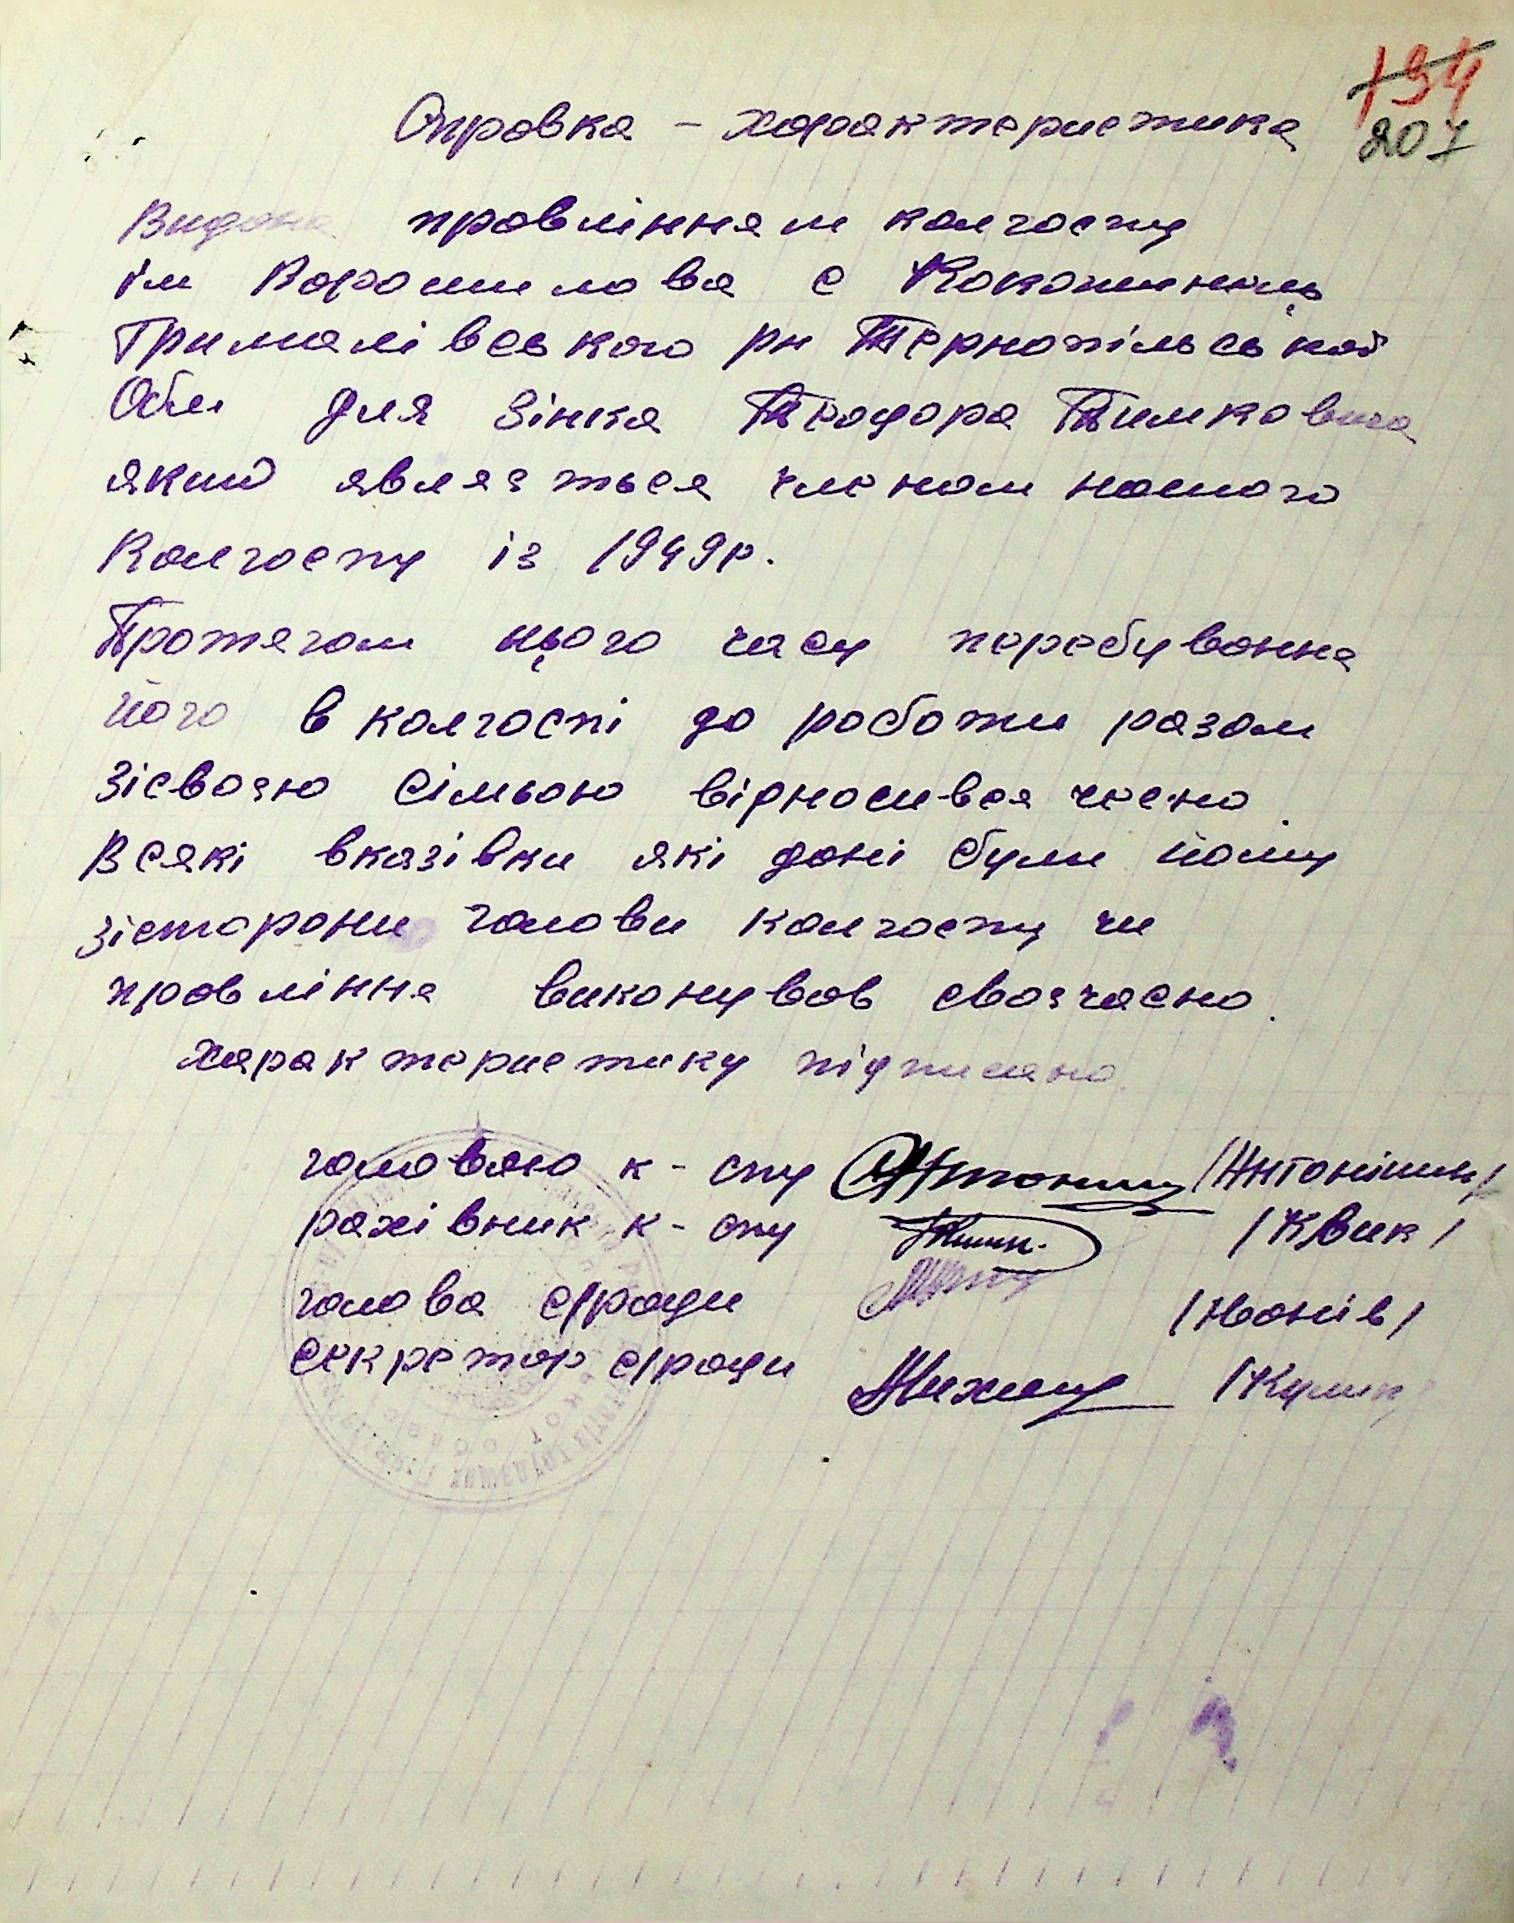 194
207
Справка - характеристика
Видана правлінням колгоспу
ім Ворошилова с Кокошинець
Грималівського рн Тернопільської
Обл для Зінка Теодора Тимковича
який являється членом нашого
Колгоспу із 1949р.
Протягом цього часу перебування
його в колгоспі до роботи разом
зісвоєю сімьою відносився чесно.
Всякі вказівки які дані були йому
зісторони голови колгоспу чи
правління виконував своєчасно.
Характеристику підписано
головою к-спу /Антонішин/
рахівник к-спу /Квик/
голова с/ради /Іванів/
секретар с/ради /Кулик